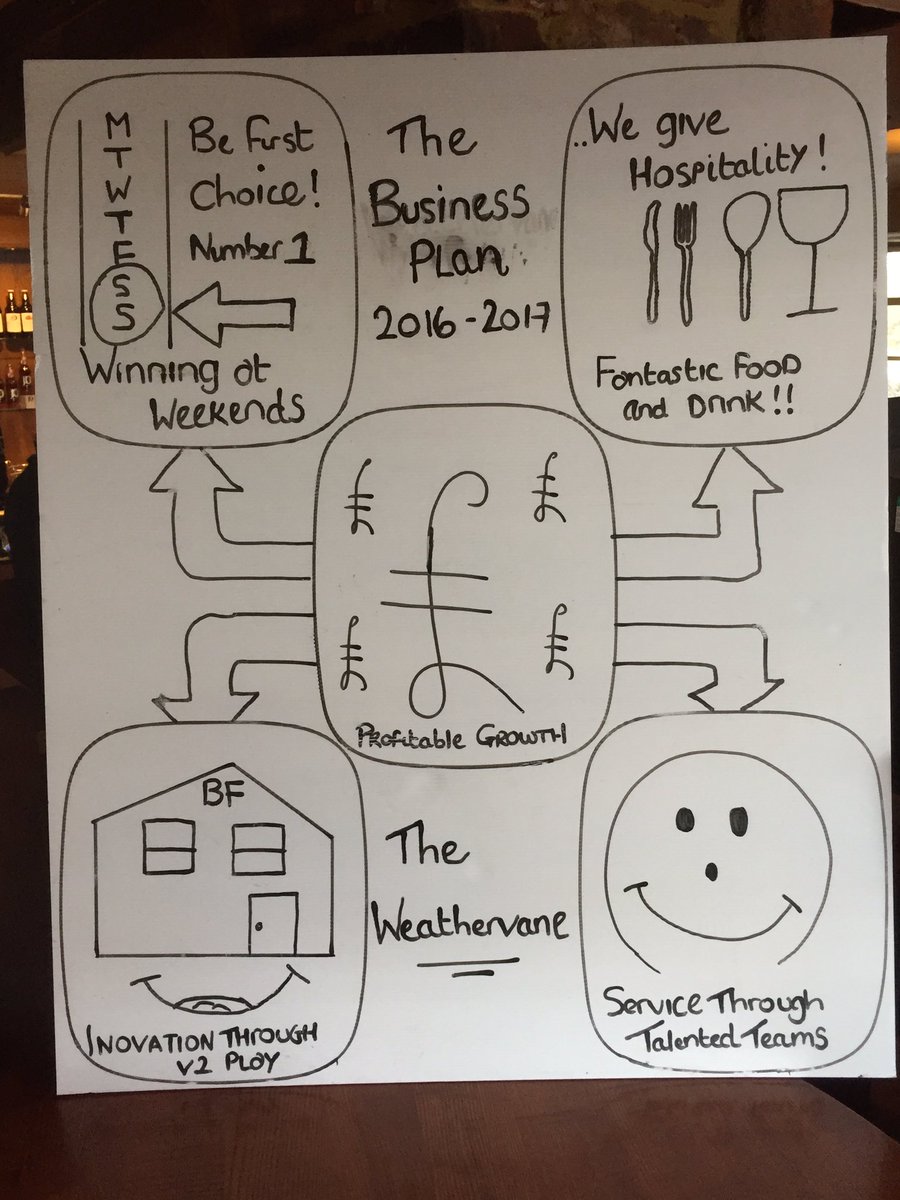 M
T
W
T
F
S
S
Be First
Choice!
Number 1
Winning at
Weekends
The
Business
Plan
2016-2017
..We give
Hospitality!
Fantastic Food
and Drink!!
£
£
£
£
£
Profitable Growth
BF
Inovation Through
V2 Ploy
The
Weathervane
Service Through
Talented Teams